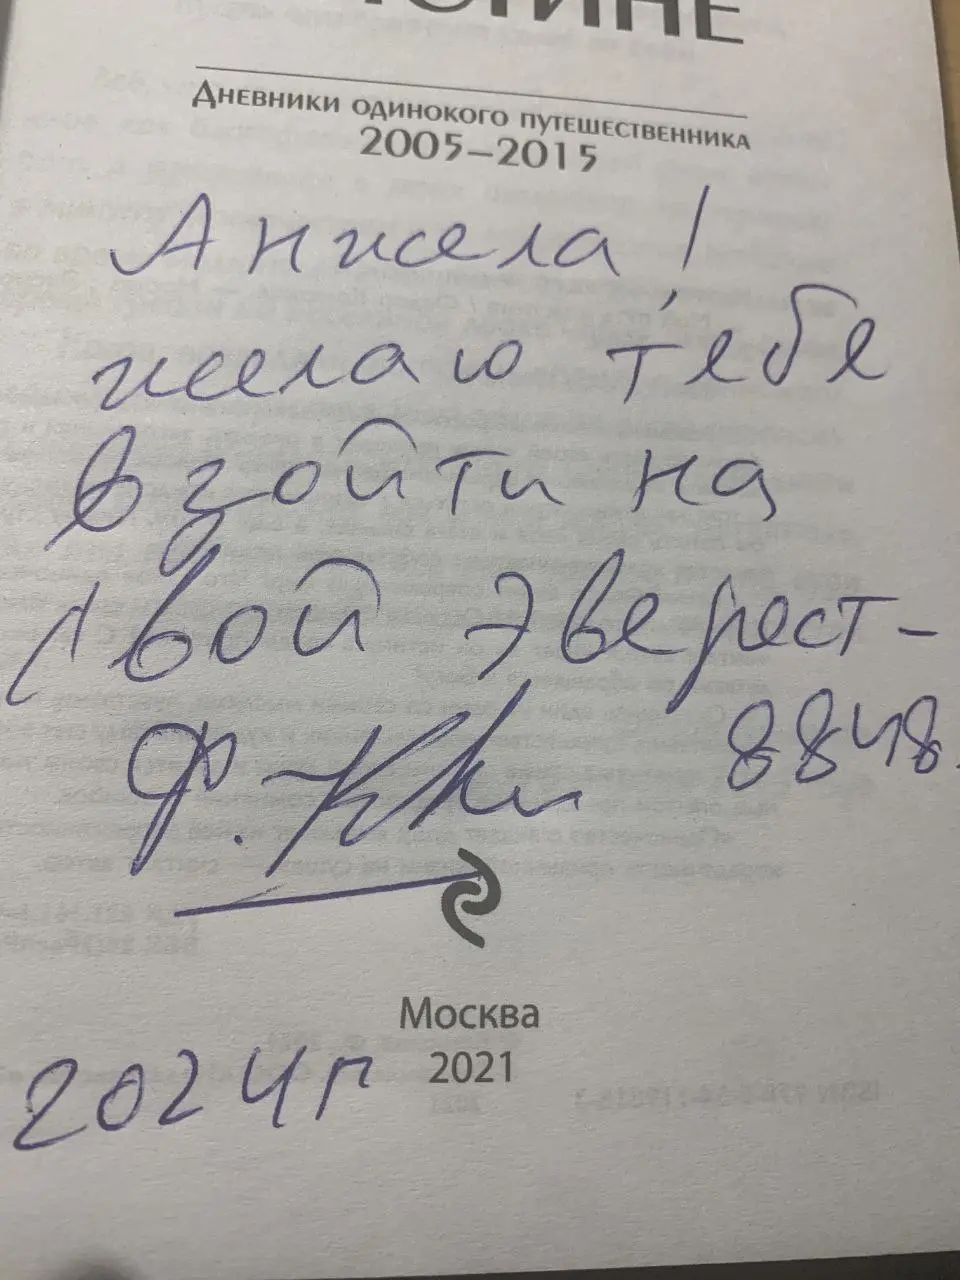 ДНЕВНИКИ ОДИНОКОГО ПУТЕШЕСТВЕННИКА
2005–2015
Анжела!
желаю тебе
взойти на
свой Эверест –
8848.
Ф. Кон
Москва
2021
2024 г